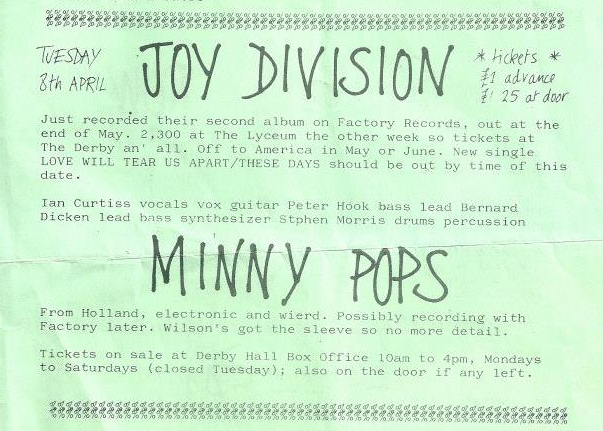 TUESDAY
8th APRIL
JOY DIVISION
* tickets *
£1 advance
£1 25 at door
Just recorded their second album on Factory Records, out at the
end of May. 2,300 at The Lyceum the other week so tickets at
The Derby an' all. Off to America in May or June. New single
LOVE WILL TEAR US APART/THESE DAYS should be out by time of this
date.
Ian Curtiss vocals vox guitar Peter Hook bass lead Bernard
Dicken lead bass synthesizer Stphen Morris drums percussion
MINNY POPS
From Holland, electronic and wierd. Possibly recording with
Factory later. Wilson's got the sleeve so no more detail.
Tickets on sale at Derby Hall Box Office 10am to 4pm, Mondays
to Saturdays (closed Tuesday); also on the door if any left.